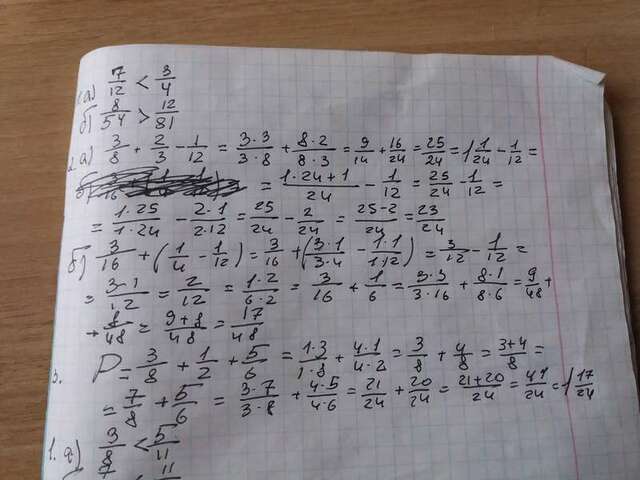 1. а) 7/12 < 3/4
б) 8/54 > 12/81
2. а) 3/8 + 2/3 - 1/12 = 3·3/3·8 + 8·2/8·3 = 9/24 + 16/24 = 25/24 = 1 1/24 - 1/12 =
= 1·24+1/24 - 1/12 = 25/24 - 1/12 =
= 1·25/1·24 - 2·1/2·12 = 25/24 - 2/24 = 25-2/24 = 23/24
б) 3/16 + (1/4 - 1/12) = 3/16 + (3·1/3·4 - 1·1/1·12) = 3/12 - 1/12 =
= 3-1/12 = 2/12 = 1·2/6·2 = 3/16 + 1/6 = 3·3/3·16 + 8·1/8·6 = 9/48 +
+ 8/48 = 9+8/48 = 17/48
3. P = 3/8 + 1/2 + 5/6 = 1·3/1·8 + 4·1/4·2 = 3/8 + 4/8 = 3+4/8 =
= 7/8 + 5/6 = 3·7/3·8 + 4·5/4·6 = 21/24 + 20/24 = 21+20/24 = 41/24 = 1 17/24
1. а) 3/8 < 5/11